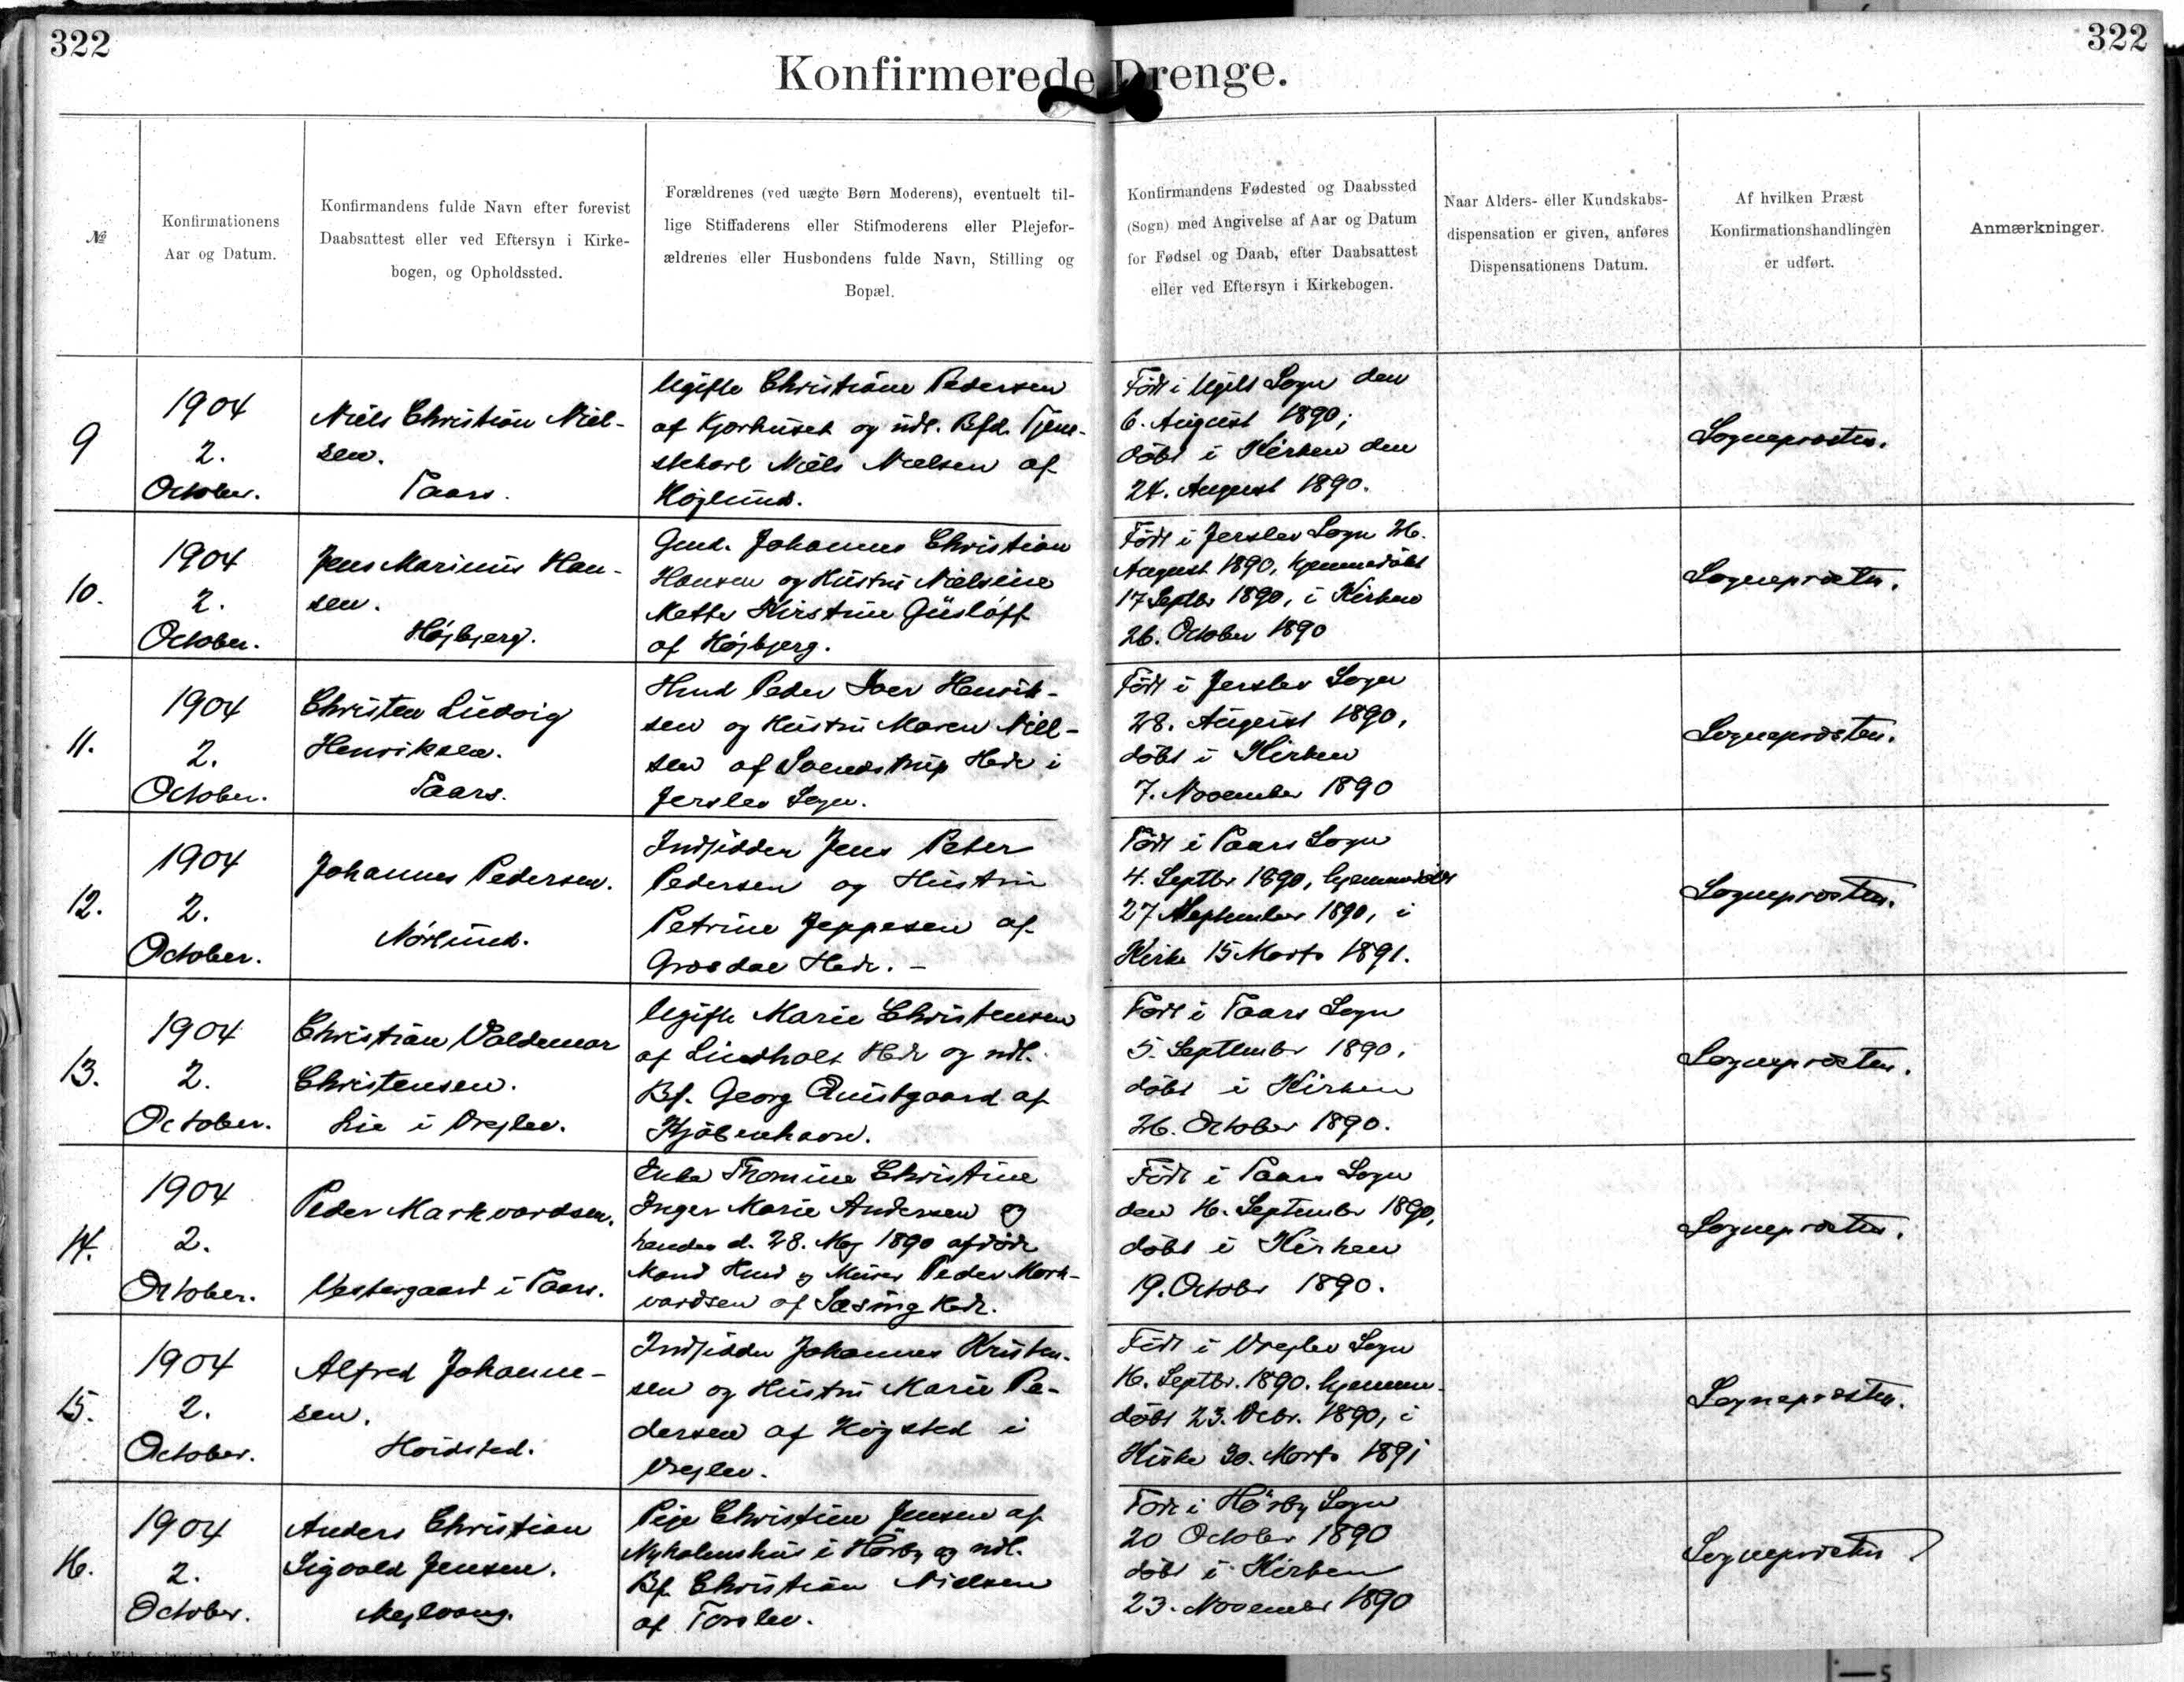 322
322
Konfirmerede Drenge.
№
Konfirmationens
Aar og Datum.
Konfirmandens fulde Navn efter forevist
Daabsattest eller ved Eftersyn i Kirke-
bogen, og Opholdssted.
Forældrenes (ved uægte Børn Moderens), eventuelt til-
lige Stiffaderens eller Stifmoderens eller Plejefor-
ældrenes eller Husbondens fulde Navn, Stilling og
Bopæl.
Konfirmandens Fødested og Daabssted
(Sogn) med Angivelse af Aar og Datum
for Fødsel og Daab, efter Daabsattest
eller ved Eftersyn i Kirkebogen.
Naar Alders- eller Kundskabs-
dispensation er given, anføres
Dispensationens Datum.
Af hvilken Præst
Konfirmationshandlingen
er udført.
Anmærkninger.
9
1904
2.
October.
Niels Christian Niel-
sen.
Taars.
Ugifte Christiane Pedersen
af Kjærhuset og udl. Bfd. Tjene-
stekarl Niels Nielsen af
Højlund.
Født i Ugilt Sogn den
6. August 1890;
døbt i Kirken den
24. August 1890.
Sognepræsten.
10.
1904
2.
October.
Jens Marinus Han-
sen.
Højbjerg.
Gmd. Johannes Christian
Hansen og Hustru Nielsine
Mette Kirstine Gusløff
af Højbjerg.
Født i Jerslev Sogn 26.
August 1890, hjemmedøbt
17 Septbr 1890, i Kirken
26. October 1890
Sognepræsten.
11.
1904
2.
October.
Christen Ludvig
Henriksen.
Taars.
Hmd Peder Iver Henrik-
sen og Hustru Maren Niel-
sen af Svendstrup Hede i
Jerslev Sogn.
Født i Jerslev Sogn
28. August 1890,
døbt i Kirken
7. November 1890
Sognepræsten.
12.
1904
2.
October.
Johannes Pedersen.
Nørlund.
Indsidder Jens Peter
Pedersen og Hustru
Petrine Jeppesen af
Grosdal Hede. –
Født i Taars Sogn
4. Septbr 1890, hjemmedøbt
27 September 1890, i
Kirke 15 Marts 1891.
Sognepræsten.
13.
1904
2.
October.
Christian Valdemar
Christensen.
Lie i Vrejlev.
Ugifte Marie Christensen
af Lindholt Hede og udl.
Bf. Georg Quistgaard af
Kjøbenhavn.
Født i Taars Sogn
5. September 1890.
døbt i Kirken
26. October 1890.
Sognepræsten.
14.
1904
2.
October.
Peder Markvardsen.
Vestergaard i Taars.
Enke Thomine Christine
Inger Marie Andersen og
hendes d. 28. Maj 1890 afdøde
Mand Hmd og Murer Peder Mark-
vardsen af Sæsing Hede.
Født i Taars Sogn
den 16. September 1890,
døbt i Kirken
19. October 1890.
Sognepræsten.
15.
1904
2.
October.
Alfred Johanne-
sen.
Hoidsted.
Indsidder Johannes Kristen-
sen og Hustru Marie Pe-
dersen af Høgsted i
Vrejlev.
Født i Vrejlev Sogn
16. Septbr. 1890. hjemme-
døbt 23. Debr. 1890, i
Kirke 30. Marts 1891
Sognepræsten.
16.
1904
2.
October.
Anders Christian
Sigvald Jensen.
Mejlvang.
Pige Christine Jensen af
Nyholmshus i Hørby og udl.
Bf. Christian Nielsen
af Torslev.
Født i Hørby Sogn
20 October 1890
døbt i Kirken
23. November 1890
Sognepræsten